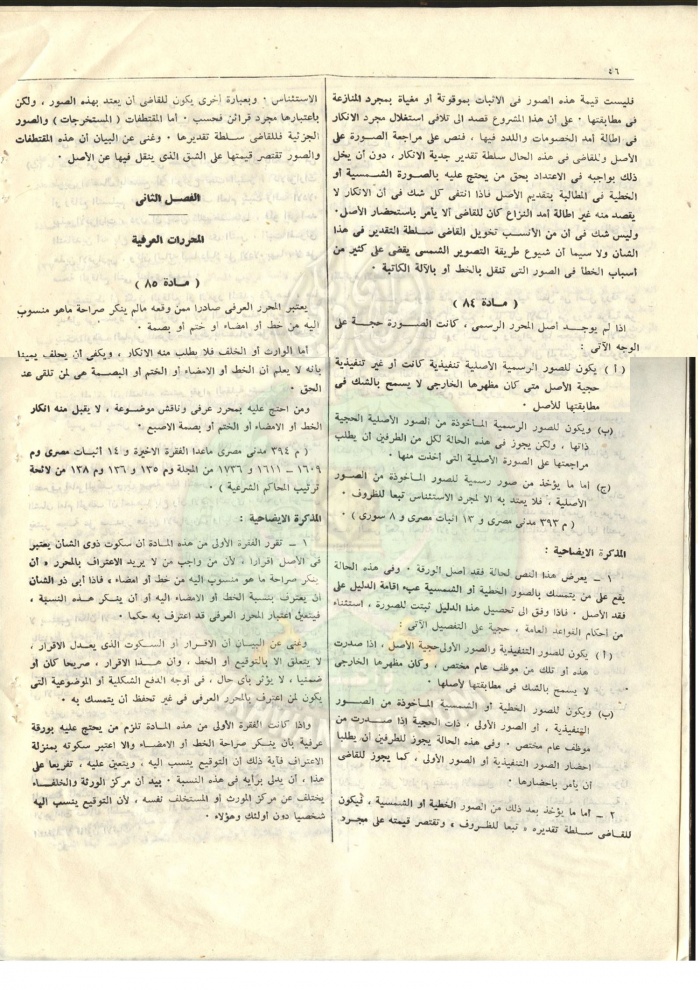 ٤٦
فليست قيمة هذه الصور فى الاثبات بموقوتة أو مغياة بمجرد المنازعة
فى مطابقتها ٠ على أن هذا المشروع قصد الى تلافى استغلال مجرد الانكار
فى اطالة أمد الخصومات واللدد فيها ، فنص على مراجعة الصورة على
الأصل وللقاضى فى هذه الحال سلطة تقدير جدية الانكار ، دون أن يخل
ذلك بواجبه فى الاعتداد بحق من يحتج عليه بالصورة الشمسية أو
الخطية فى المطالبة بتقديم الأصل فاذا انتفى كل شك فى أن الانكار لا
يقصد منه غير اطالة أمد النزاع كان للقاضى ألا يأمر باستحضار الأصل٠
وليس شك فى أن من الأنسب تخويل القاضى سلطة التقدير فى هذا
الشأن ولا سيما أن شيوع طريقة التصوير الشمسى يقضى على كثير من
أسباب الخطأ فى الصور التى تنقل بالخط أو بالآلة الكاتبة ٠
( مــادة ٨٤ )
اذا لم يوجــد أصل المحرر الرسمى ، كانت الصـــورة حجـــة على
الوجه الآتى :
( أ ) يكون للصور الرسمية الأصلية تنفيذية كانت أو غير تنفيذية
حجية الأصل متى كان مظهرها الخارجى لا يسمح بالشك فى
مطابقتها للأصل ٠
(ب) ويكون للصور الرسمية المأخوذة من الصور الأصلية الحجية
ذاتها ، ولكن يجوز فى هذه الحالة لكل من الطرفين أن يطلب
مراجعتها على الصورة الأصلية التى أخذت منها ٠
(ج) أما ما يؤخذ من صور رسمية للصور المأخوذة من الصور
الأصلية ، فلا يعتد به الا لمجرد الاستئناس تبعا للظروف ٠
( م ٣٩٣ مدنى مصرى و ١٣ اثبات مصرى و ٨ سورى ) ٠
المذكرة الايضاحية :
١ ــ يعرض هذا النص لحالة فقد أصل الورقة ٠ وفى هذه الحالة
يقع على من يتمسك بالصور الخطية أو الشمسية عبء اقامة الدليل على
فقد الأصل ٠ فاذا وفق الى تحصيل هذا الدليل ثبتت للصورة ، استثناء
من أحكام القواعد العامة ، حجية على التفصيل الآتى
( أ ) يكون للصور التنفيذية والصور الأولى حجية الأصل ، اذا صدرت
هذه أو تلك من موظف عام مختص ، وكان مظهرها الخارجى
لا يسمح بالشك فى مطابقتها لأصلها ٠
(ب) ويكون للصور الخطية أو الشمسية المــأخوذة من الصــور
التنفيذية ، أو الصور الأولى ، ذات الحجية اذا صــدرت من
موظف عام مختص ٠ وفى هذه الحالة يجوز للطرفين أن يطلبا
احضار الصور التنفيذية أو الصور الأولى ، كما يجوز للقاضى
أن يأمر باحضارها ٠
٢ ــ أما ما يؤخذ بعد ذلك من الصور الخطية أو الشمسية ، فيكون
للقاضى سلطة تقديره « تبعا للظروف » وتقتصر قيمته على مجرد
الاستئناس ٠ وبعبارة أخرى يكون للقاضى أن يعتد بهذه الصور ، ولكن
باعتبارها مجرد قرائن فحسب ٠ أما المقتطفات ( المستخرجات ) والصور
الجزئية فللقاضى سلطة تقديرها ٠ وغنى عن البيان أن هذه المقتطفات
والصور تقتصر قيمتها على الشق الذى ينقل فيها عن الأصل ٠
الفصــل الثانى
المحررات العرفية
( مــادة ٨٥ )
يعتبر المحرر العرفى صادرا ممن وقعه مالم ينكر صراحة ماهو منسوب
اليه من خط أو امضاء أو ختم أو بصمة ٠
أما الوارث أو الخلف فلا يطلب منه الانكار ، ويكفى أن يحلف يمينا
بأنه لا يعلم أن الخط أو الامضاء أو الختم أو البصمة هى لمن تلقى عنه
الحق ٠
ومن احتج عليه بمحرر عرفى وناقش موضوعه ، لا يقبل منه انكار
الخط أو الامضاء أو الختم أو بصمة الاصبع ٠
( م ٣٩٤ مدنى مصرى ماعدا الفقرة الاخيرة و ١٤ اثبات مصرى وم
١٦٠٩ ــ ١٦١١ و ١٧٣٦ من المجلة وم ١٣٥ و ١٣٦ وم ١٣٨ من لائحة
ترتيب المحاكم الشرعية ) ٠
المذكرة الايضاحية :
١ ــ تقرر الفقرة الأولى من هذه المادة أن سكوت ذوى الشأن يعتبر
فى الأصل اقرارا ، لأن من واجب من لا يريد الاعتراف بالمحرر « أن
ينكر صراحة ما هو منسوب اليه من خط أو امضاء » فاذا أبى ذو الشأن
أن يعترف بنسبة الخط أو الامضاء اليه أو أن ينكر هــذه النسبة ،
فيتعين اعتبار المحرر العرفى قد اعترف به حكما ٠
وغنى عن البيــان أن الاقــرار أو السكوت الذى يعــدل الاقرار ،
لا يتعلق الا بالتوقيع أو الخط ، وان هــذا الاقرار ، صريحا كان أو
ضمنيا ، لا يؤثر بأى حال ، فى أوجه الدفع الشكلية أو الموضوعية التى
يكون لمن اعترف بالمحرر العرفى فى غير تحفظ أن يتمسك به ٠
واذا كانت الفقرة الأولى من هذه المادة تلزم من يحتج عليه بورقة
عرفية بأن ينكر صراحة الخط أو الامضــاء والا اعتبر سكوته بمنزلة
الاعتراف فآية ذلك أن التوقيع ينسب اليه ، ويتعين عليه ، تفريعا على
هذا ، أن يدلى برأيه فى هذه النسبة ٠ بيد أن مركز الورثة والخلفــاء
يختلف عن مركز المورث أو المستخلف نفسه ، لأن التوقيع ينسب اليه
شخصيا دون أولئك وهؤلاء ٠